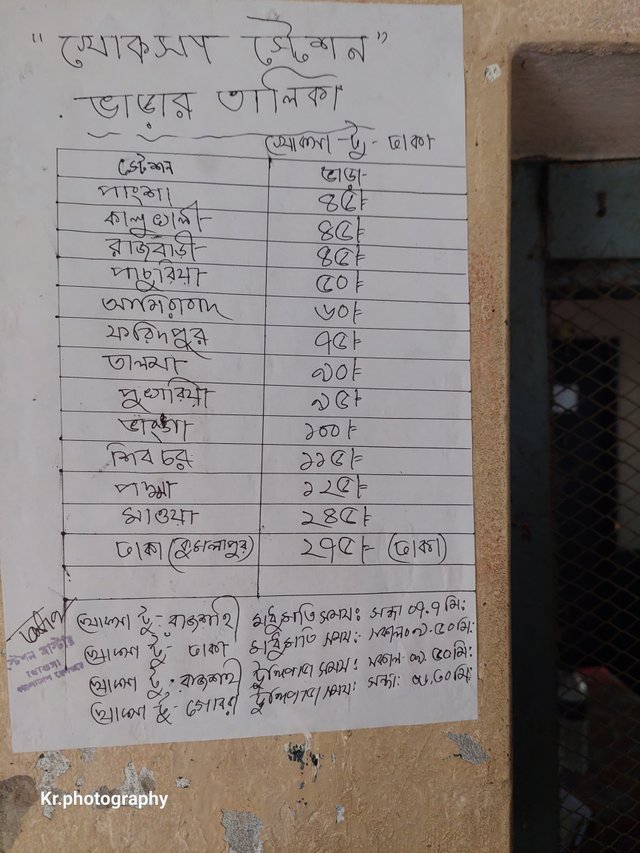 "খোকসা স্টেশন"
ভাড়ার তালিকা
খোকসা - টু - ঢাকা
স্টেশন ভাড়া
পাংশা ৪৫/-
কালুখালী ৪৫/-
রাজবাড়ী ৪৫/-
পাচুরিয়া ৫০/-
আমিরাবাদ ৬০/-
ফরিদপুর ৭৫/-
তালমা ৯০/-
পুখুরিয়া ৯৫/-
ভাংগা ১০০/-
শিবচর ১১৫/-
পদ্মা ১২৫/-
মাওয়া ২৪৫/-
ঢাকা (কমলাপুর) ২৭৫/- (ঢাকা)
খোকসা টু - রাজশাহী মধুমতি সময়ঃ সন্ধা
খোকসা টু - ঢাকা মধুমতি সময়ঃ সকাল
খোকসা টু - রাজশাহী টুঙ্গিপাড়া সময়ঃ সকাল
খোকসা টু - গোবরা টুঙ্গিপাড়া সময়ঃ সন্ধা
স্টেশন মাস্টার
খোকসা
Kr.photography